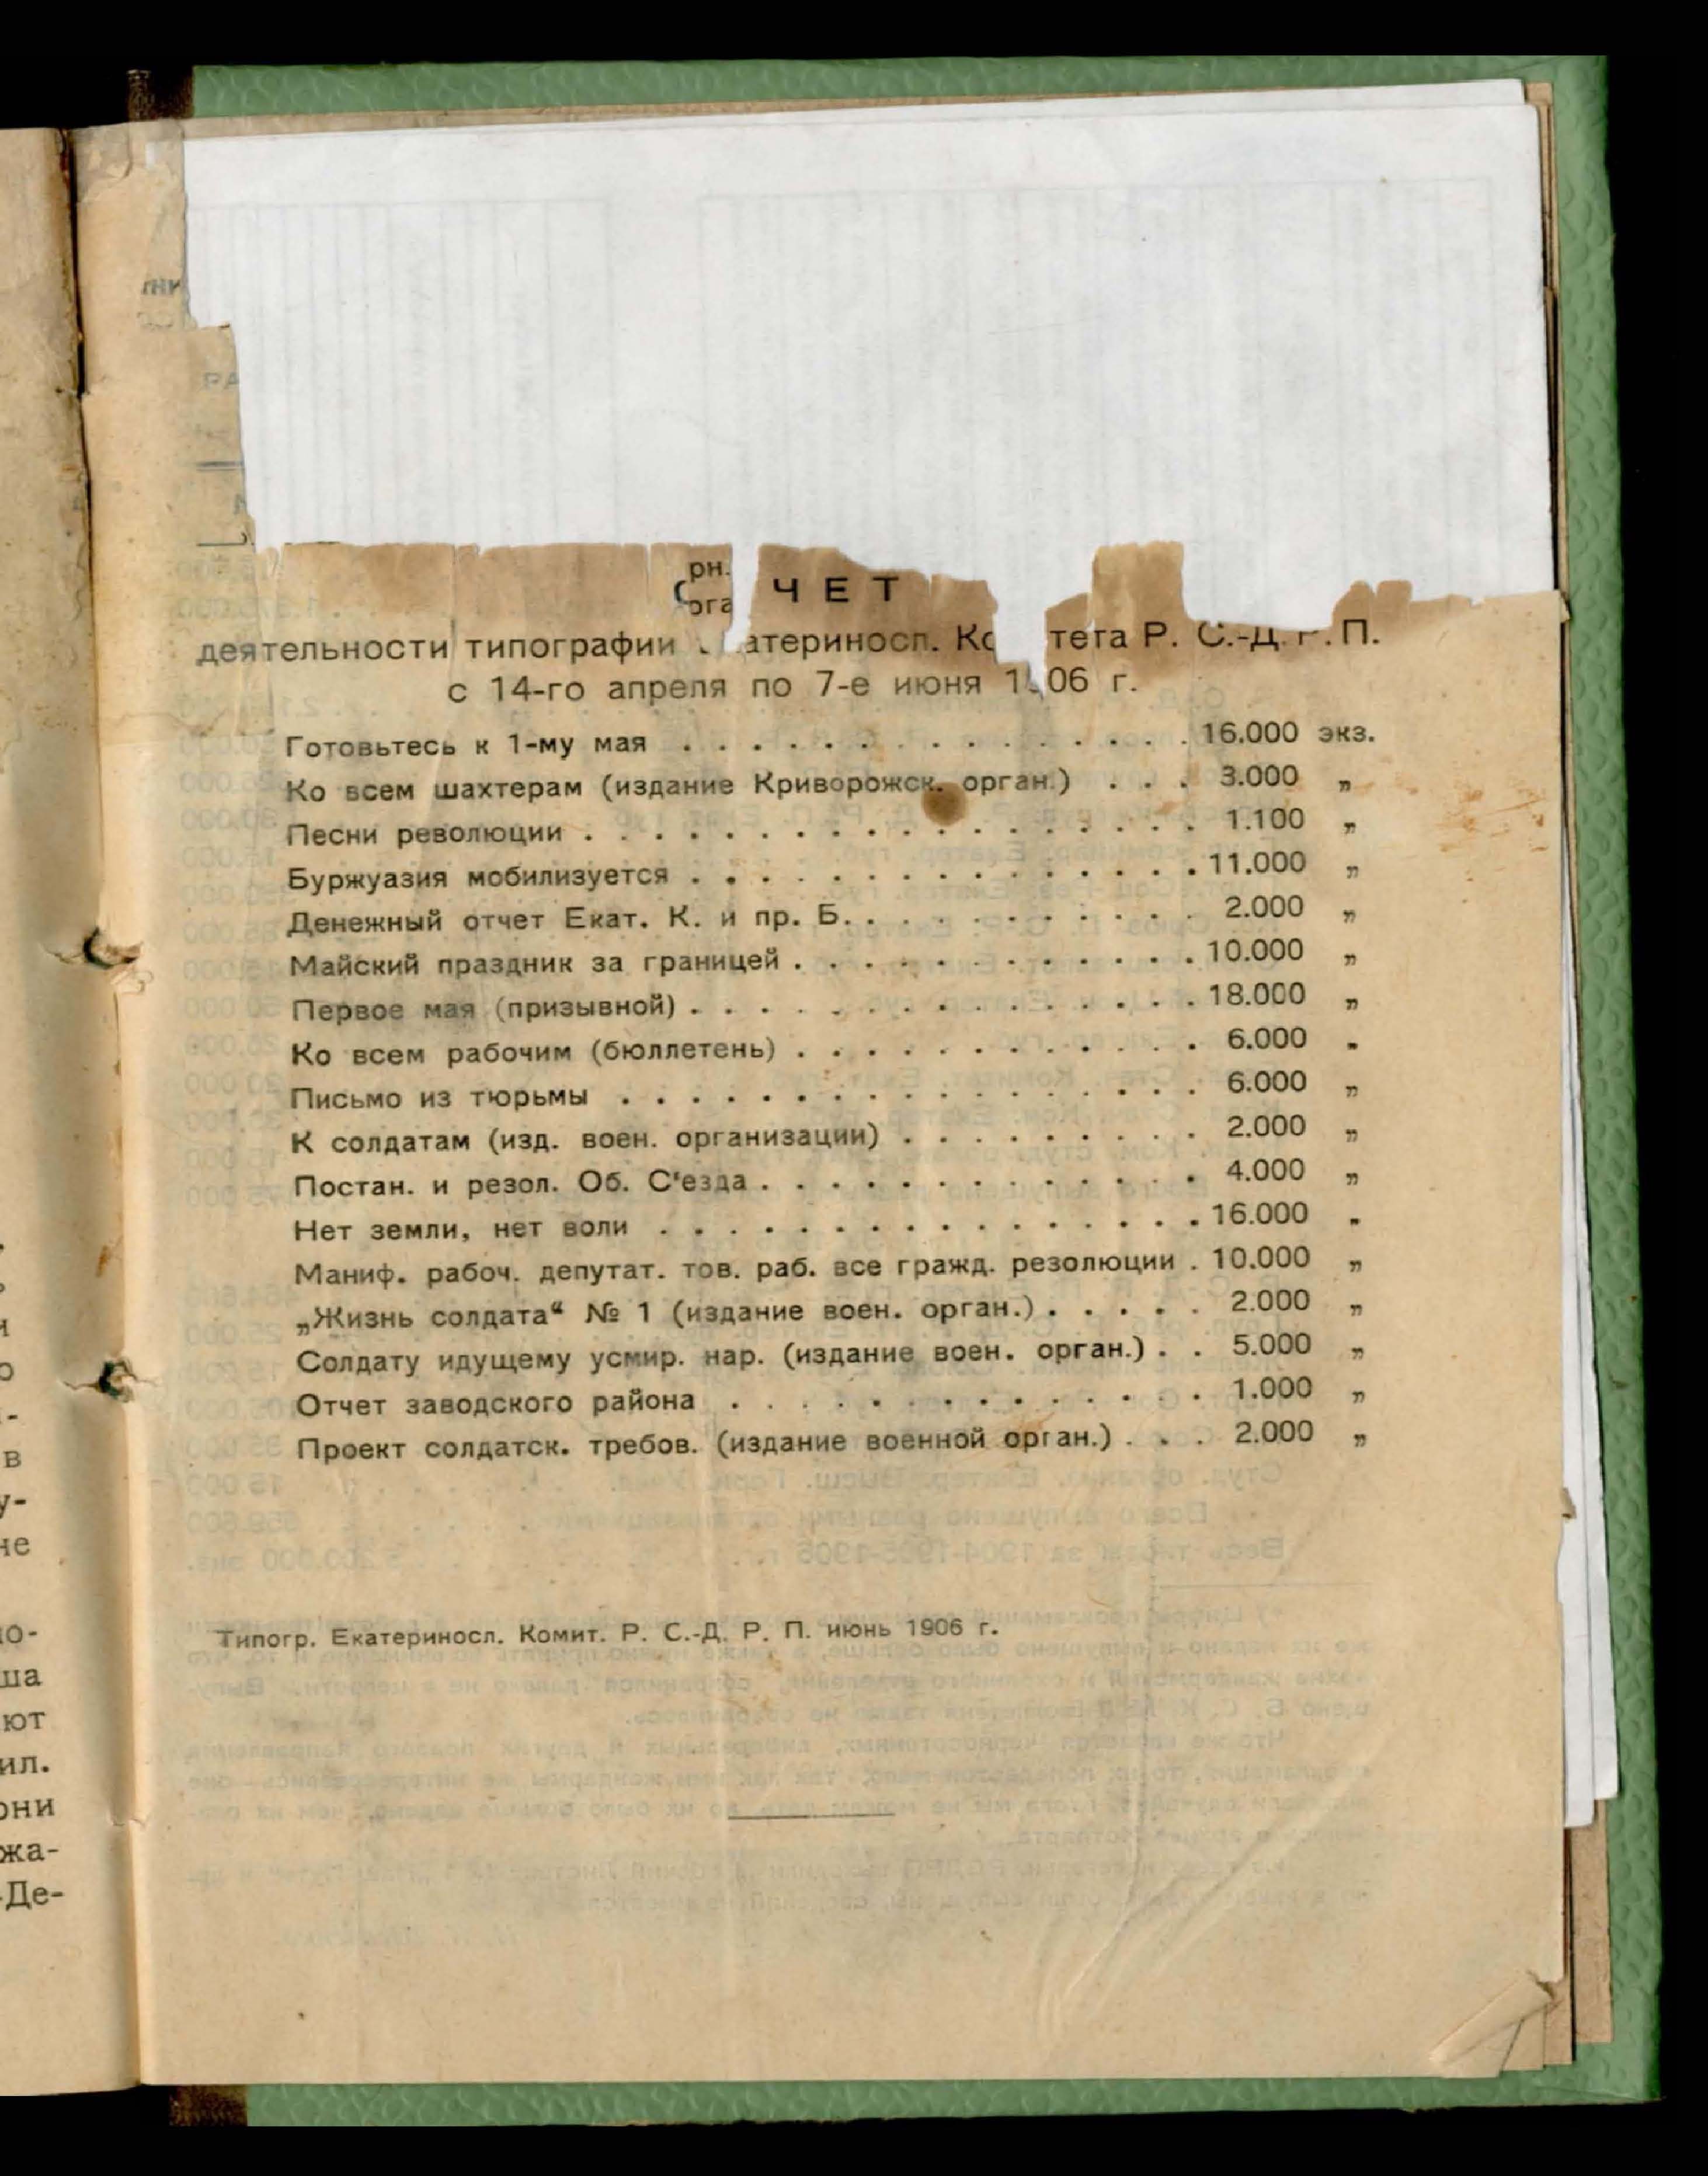 ЧЕТ
деятельности типографии атериносл. Ко тета Р. С.-Д. Р. П.
с 14-го апреля по 7-е июня 1906 г.
Готовьтесь к 1-му мая . . . . . . . . . . . . . . . 16.000 экз.
Ко всем шахтерам (издание Криворожск. орган.) . . . 3.000 „
Песни революции . . . . . . . . . . . . . . . . . . 1.100 „
Буржуазия мобилизуется . . . . . . . . . . . . . . . 11.000 „
Денежный отчет Екат. К. и пр. Б. . . . . . . . . . . 2.000 „
Майский праздник за границей . . . . . . . . . . . . 10.000 „
Первое мая (призывной) . . . . . . . . . . . . . . . 18.000 „
Ко всем рабочим (бюллетень) . . . . . . . . . . . . 6.000 „
Письмо из тюрьмы . . . . . . . . . . . . . . . . . 6.000 „
К солдатам (изд. воен. организации) . . . . . . . . . 2.000 „
Постан. и резол. Об. С'езда . . . . . . . . . . . . . 4.000 „
Нет земли, нет воли . . . . . . . . . . . . . . . . 16.000 „
Маниф. рабоч. депутат. тов. раб. все гражд. резолюции . 10.000 „
„Жизнь солдата“ № 1 (издание воен. орган.) . . . . . 2.000 „
Солдату идущему усмир. нар. (издание воен. орган.) . . 5.000 „
Отчет заводского района . . . . . . . . . . . . . . 1.000 „
Проект солдатск. требов. (издание военной орган.) . . . 2.000 „
Типогр. Екатериносл. Комит. Р. С.-Д. Р. П. июнь 1906 г.